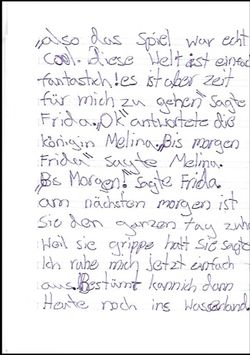 „also das Spiel war echt
cool. diese Welt ist einfach
fantastisch! es ist aber zeit
für mich zu gehen" sagte
Frida. „OK" antwortete die
königin Melina. „Bis morgen
Frida" sagte Melina.
„Bis Morgen!" sagte Frida.
am nächsten morgen ist
Sie den ganzen tag zuhause
Weil sie grippe hatt sie sagte
Ich ruhe mich jetzt einfach
aus. Bestimt kann ich dann
Heute noch ins Wasserland.